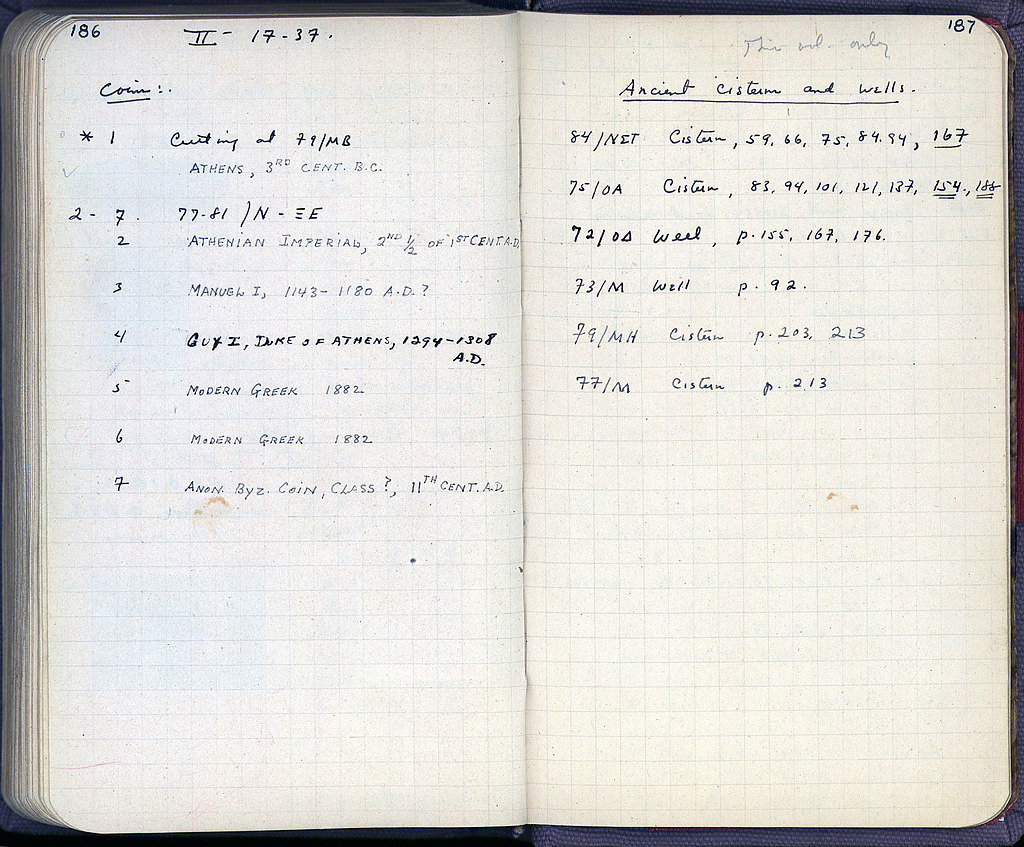 186
II - 17-37.
Coins:.
* 1 Cutting at 79/MB
ATHENS, 3RD CENT. B.C.
2 - 7. 77-81 / N - ΞE
2 ATHENIAN IMPERIAL, 2ND 1/2 OF 1ST CENT. A.D.
3 MANUEL I, 1143-1180 A.D.?
4 GUY I, DUKE OF ATHENS, 1294-1308
A.D.
5 MODERN GREEK 1882
6 MODERN GREEK 1882
7 ANON. BYZ. COIN, CLASS ?, 11TH CENT. A.D.
187
This vol. only
Ancient cisterns and wells.
84/NET Cistern, 59, 66, 75, 84. 94, 167
75/OA Cistern, 83, 94, 101, 121, 137, 154.,
72/OΔ Well, p. 155, 167, 176.
73/M Well p. 92.
79/MH Cistern p. 203, 213
77/M Cistern p. 213